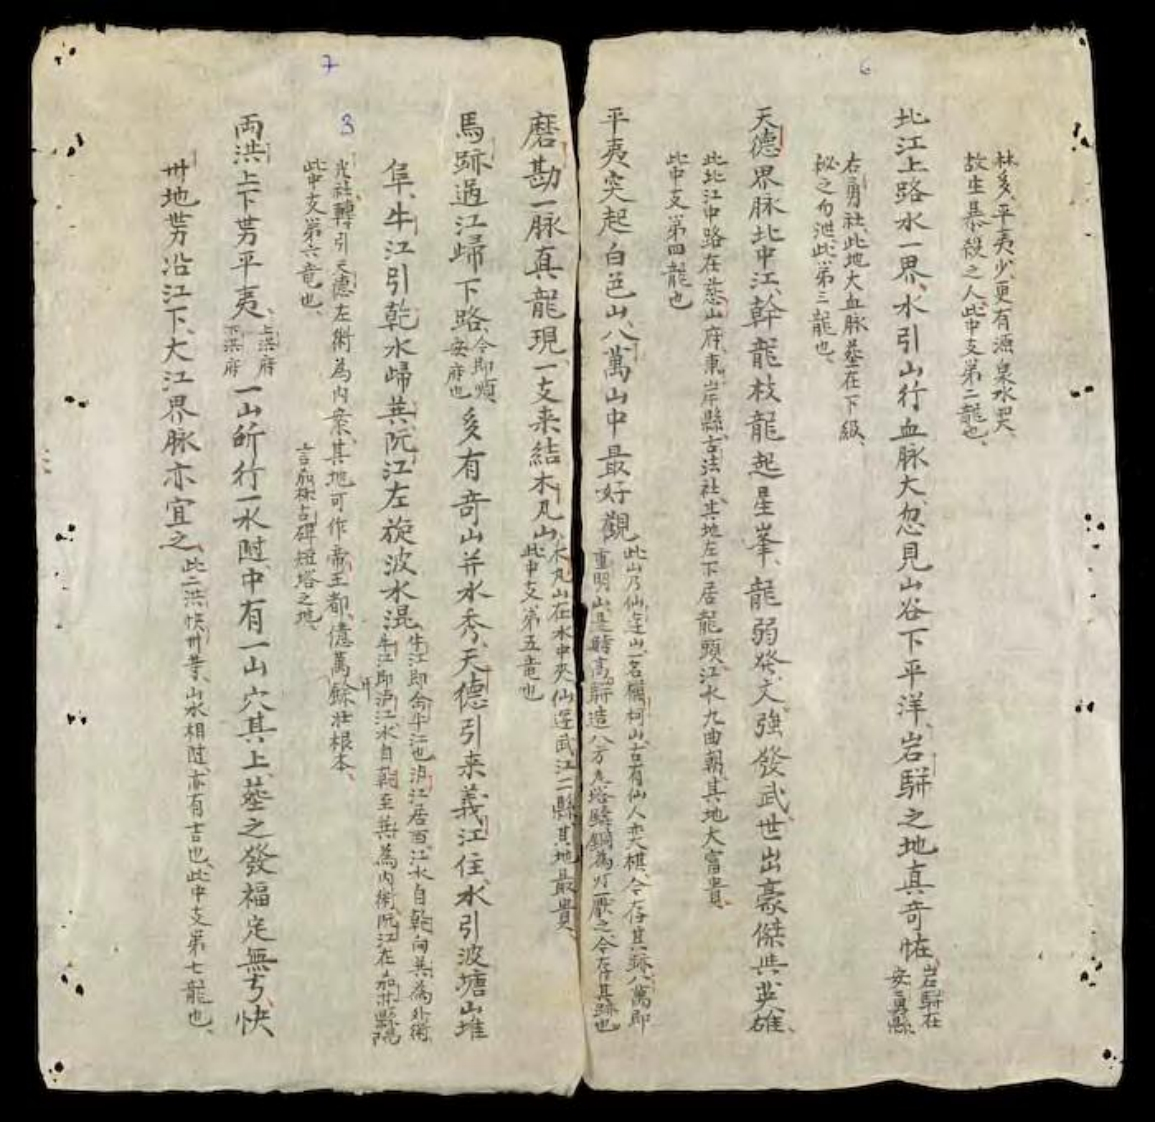 6
林多平夷少更有源泉水哭、
故生暴殺之人、此中支第二龍也、
北江上路水一界、水引山行血脉大、忽見山谷下平洋、岩駢之地真奇恠、
岩駢在
安勇縣
右勇社、此地大血脉葬在下級、
秘之勿泄、此第三龍也、
天德界脉北中江、幹龍枝龍起星峯、龍弱發文強發武、世出豪傑與英雄、
此北江中路在慈山府東岸縣古法社、其地左下居龍頭、江水九曲朝、其地大富貴、
此中支第四龍也
平夷突起白邑山、八萬山中最好觀、
此山乃仙遊山、一名爛柯山、古有仙人奕棋、今存其跡、八萬即
重明山是時高駢造八方
塔鑄銅為
厭之、今存其跡也
磨勘一脉真龍現、一支来結木凡山、
木丸山在水中夾仙遊武江二縣、其地最貴、
此中支第五竜也
7
馬跡過江歸下路、
今即順
安府也
多有奇山并水秀、天德引来義江住、水引波塘山堆
阜、牛江引乾水歸巽、阮江左旋波水混、
牛江即命牛江也、瀘江居西、江水自乾向巽為外衛、
牛江即瀘江水自乾至巽為内衛、阮江在嘉林縣陽
3
光社轉引天德左衛為内案、其地可作帝王都、億萬餘壯根本、
言嘉林占碑短塔之地、
此中支第六竜也、
両洪上下勢平夷、
上洪府
下洪府
一山所行一水隨、中有一山穴其上、葬之發福定無亐、快
卅地勢沿江下、大江界脉亦宜之、
此二洪快卅等、山水相隨、亦有吉也、此中支第七龍也、